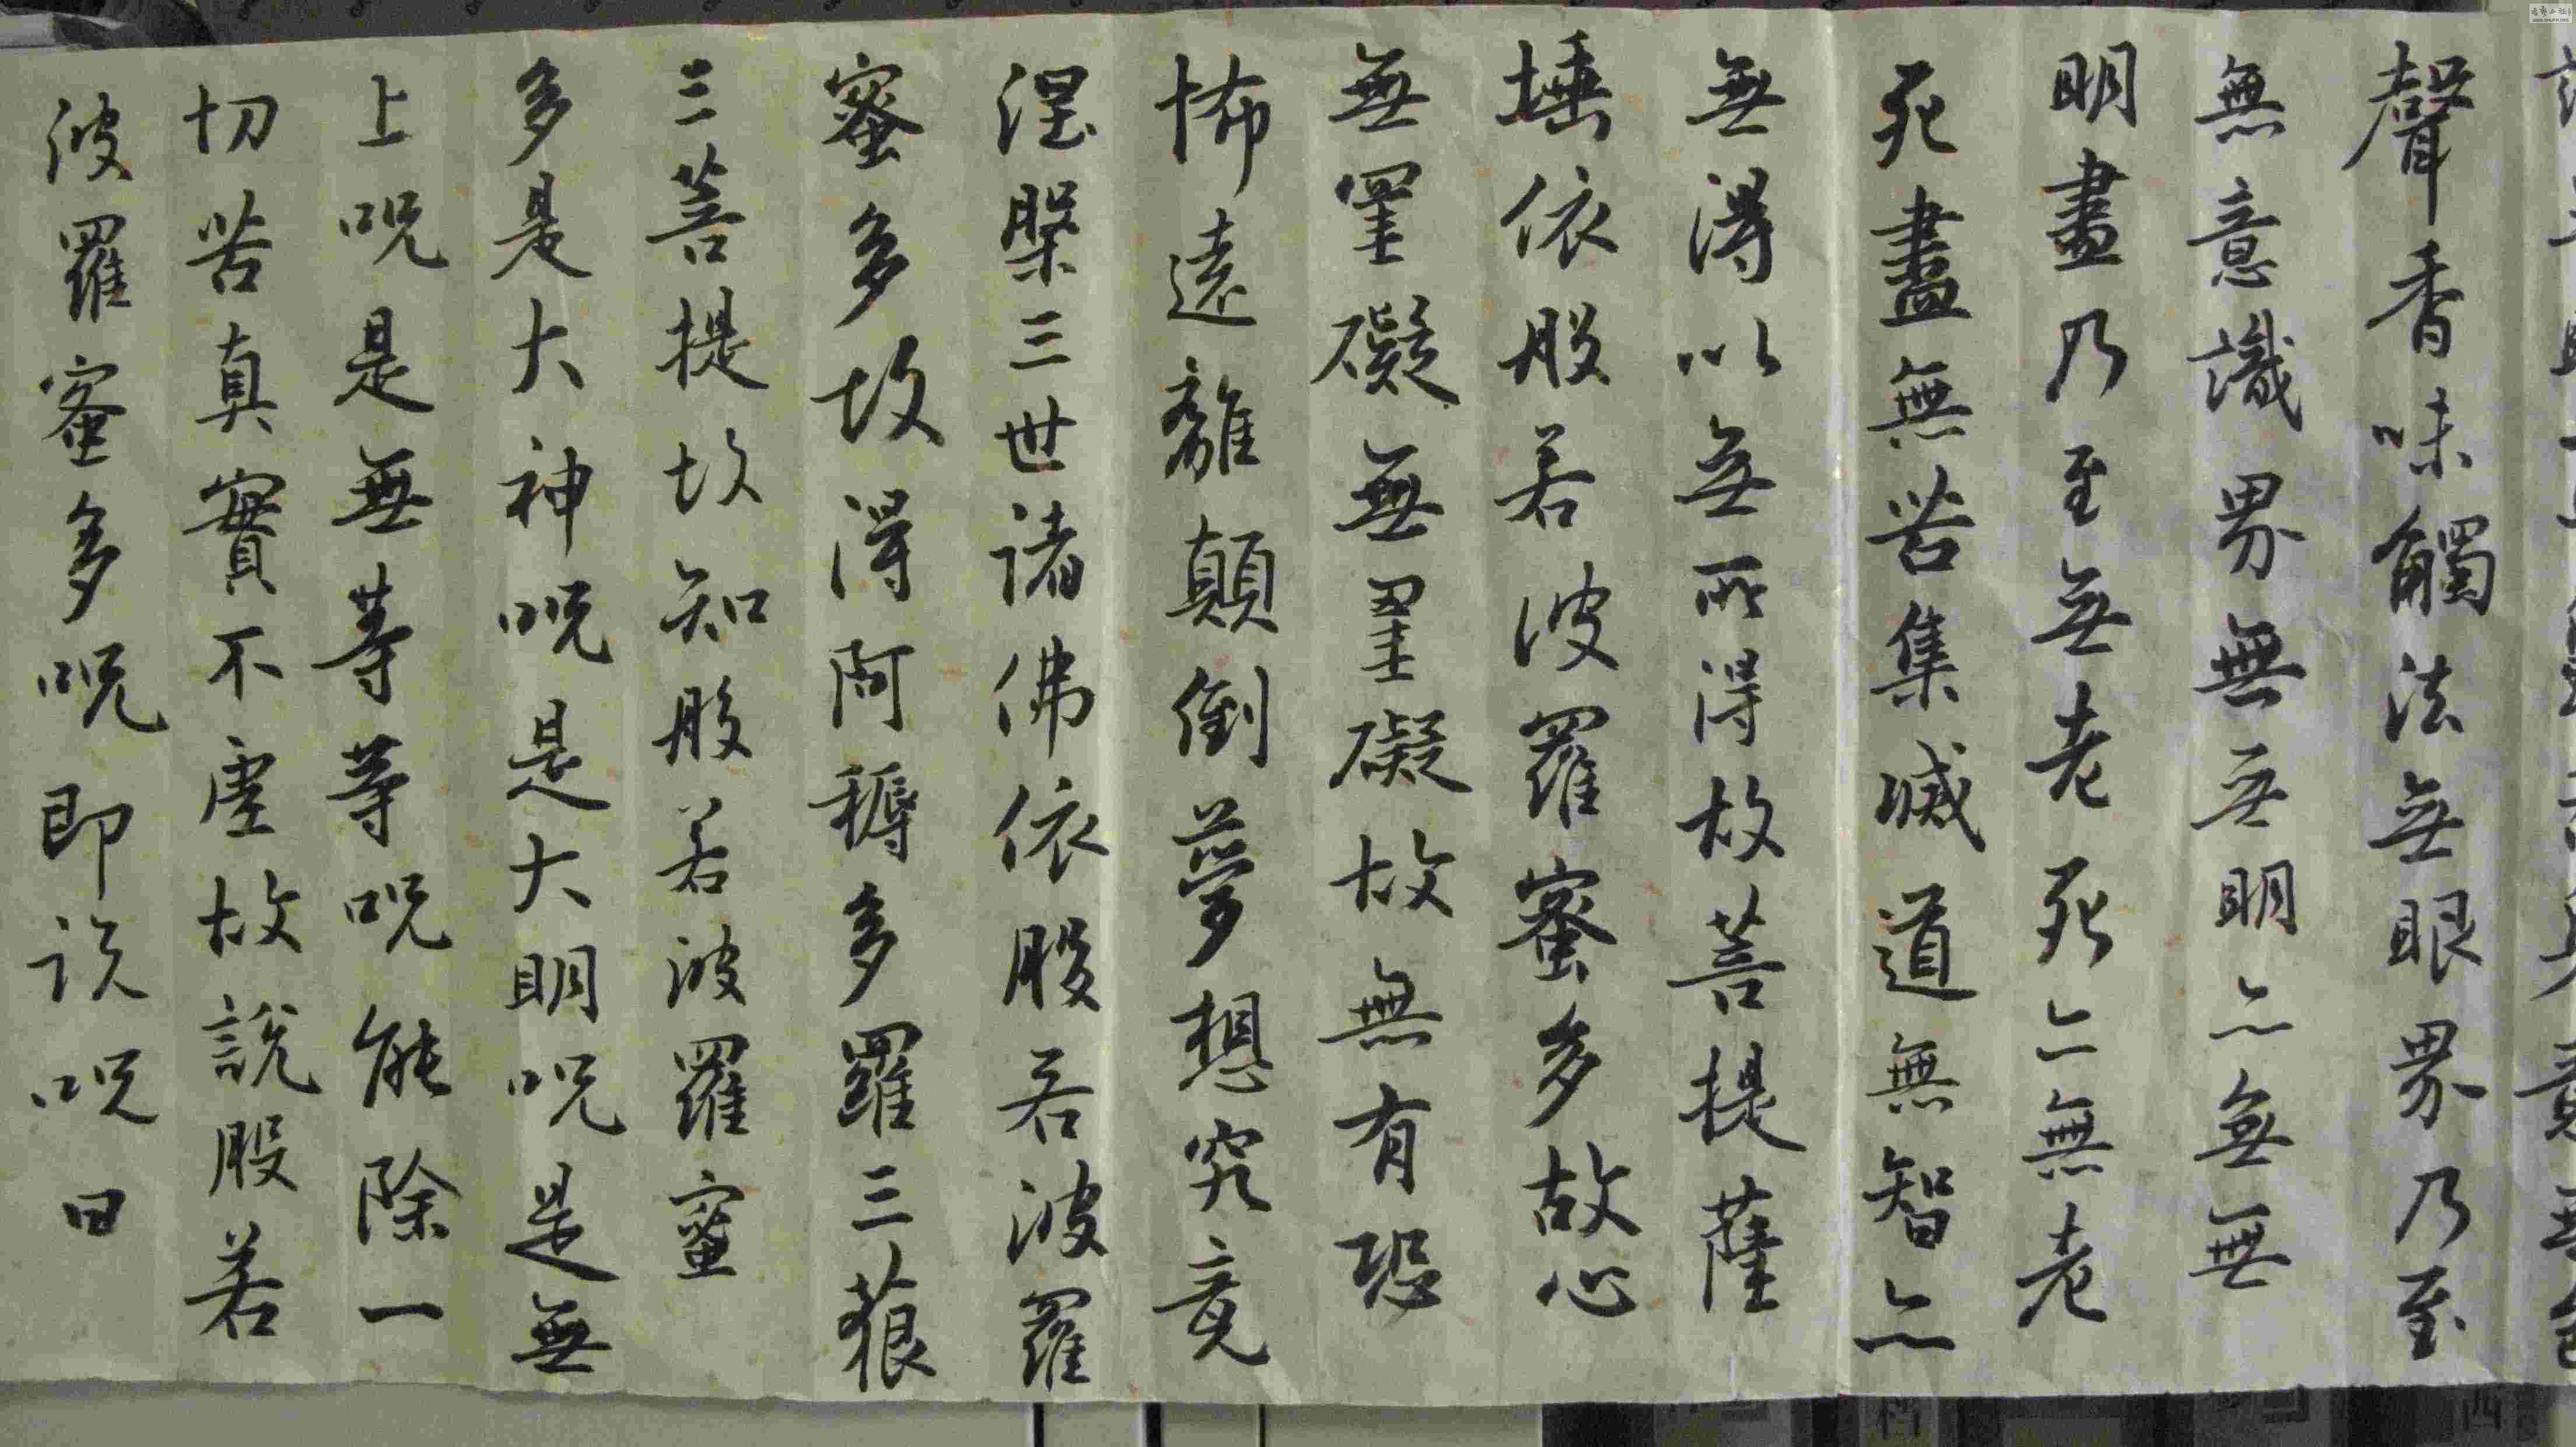 聲香味觸法無眼界乃至
無意識界無無明亦無無
明盡乃至無老死亡無老
死盡無苦集滅道無智亦
無得以無所得故菩提薩
埵依般若波羅蜜多故心
無罣礙無罣礙故無有恐
怖遠離顛倒夢想究竟
涅槃三世諸佛依般若波羅
蜜多故得阿耨多羅三藐
三菩提故知般若波羅蜜
多是大神呪是大明呪是無
上呪是無等等呪能除一
切苦真實不虛故說般若
波羅蜜多呪即说呪曰